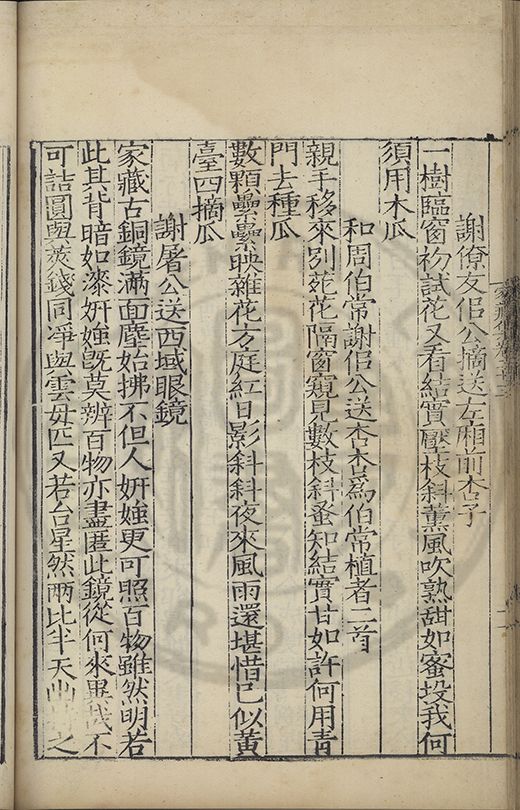 謝僚友侶公摘送左廂前杏子
一樹臨窗初試花又看結實壓枝斜薰風吹熟甜如蜜投我何
須用木瓜
和周伯常謝侶公送杏杏為伯常植者二首
親手移來別苑花隔窗窺見數枝斜蚤知結實甘如許何用青
門去種瓜
數顆纍纍映雜花方庭紅日影斜斜夜來風雨還堪惜已似黃
臺四摘瓜
謝屠公送西域眼鏡
家藏古銅鏡滿面塵始拂不但人妍媸更可照百物雖然明若
此其背暗如漆妍媸旣莫辨百物亦盡匿此鏡從何來異哉不
可詰圓與莢錢同淨與雲母匹又若台星然兩比半天出之
家藏集卷